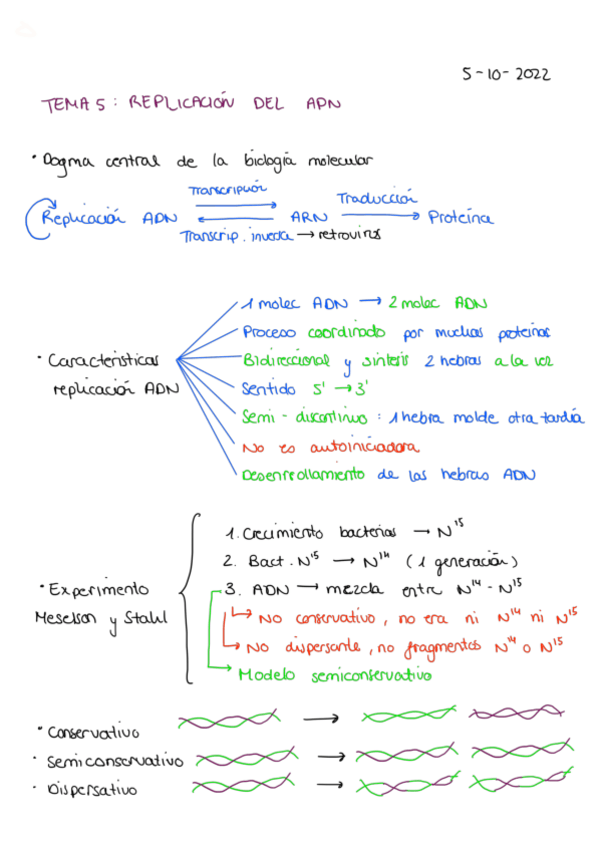 5-10-2022
TEMA 5: REPLICACIÓN DEL ADN
· Dogma central de la biología molecular
Transcripción
Traducción
Replicación ADN ARN → Proteína
Transcrip. inversa → retrovirus
1 molec ADN → 2 molec ADN
Proceso coordinado por muchas proteínas
· Características Bidireccional y síntesis 2 hebras a la vez
replicación ADN Sentido 5' → 3'
Semi-discontinuo: 1 hebra molde otra tardía
No es autoiniciadora
Desenrollamiento de las hebras ADN
1. Crecimiento bacterias → N15
2. Bact. N15 → N14 (1 generación)
· Experimento 3. ADN → mezcla entre N14 - N15
Meselson y Stahl No conservativo, no era ni N14 ni N15
No dispersante, no fragmentos N14 o N15
Modelo semiconservativo
· Conservativo →
· Semiconservativo →
· Dispersativo →